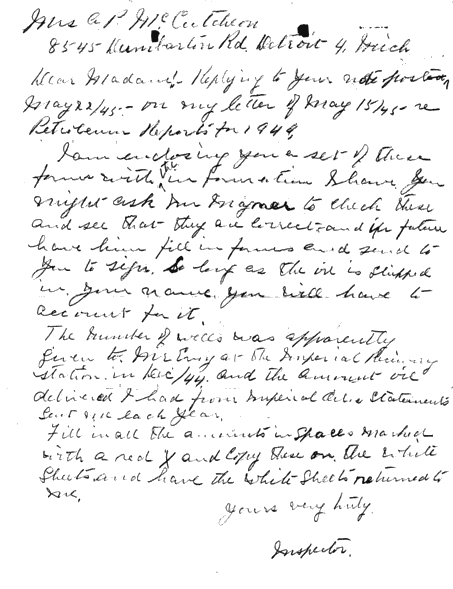 Mrs A P McCutcheon
8545 Dumbarton Rd, Detroit 4, Mich
Dear Madam:- Replying to your note posted
May 22/45 - on my letter of May 15/45 - re
Petroleum Reports for 1944,
I am enclosing you a set of these
forms with the information I have. You
might ask Mr to check these
and see that they are correct and in future
have him fill in forms and send to
you to sign. So long as the oil is shipped
in your name, you will have to
account for it.
The number of wells was apparently
given to Mr at the Imperial
station in Dec/44. and the amount oil
delivered I had from Imperial Oil Statements
sent me each year.
Fill in all the amounts in spaces marked
with a red X and copy these on the white
sheets and have the white sheets returned to
me.
Yours very truly.
Inspector.